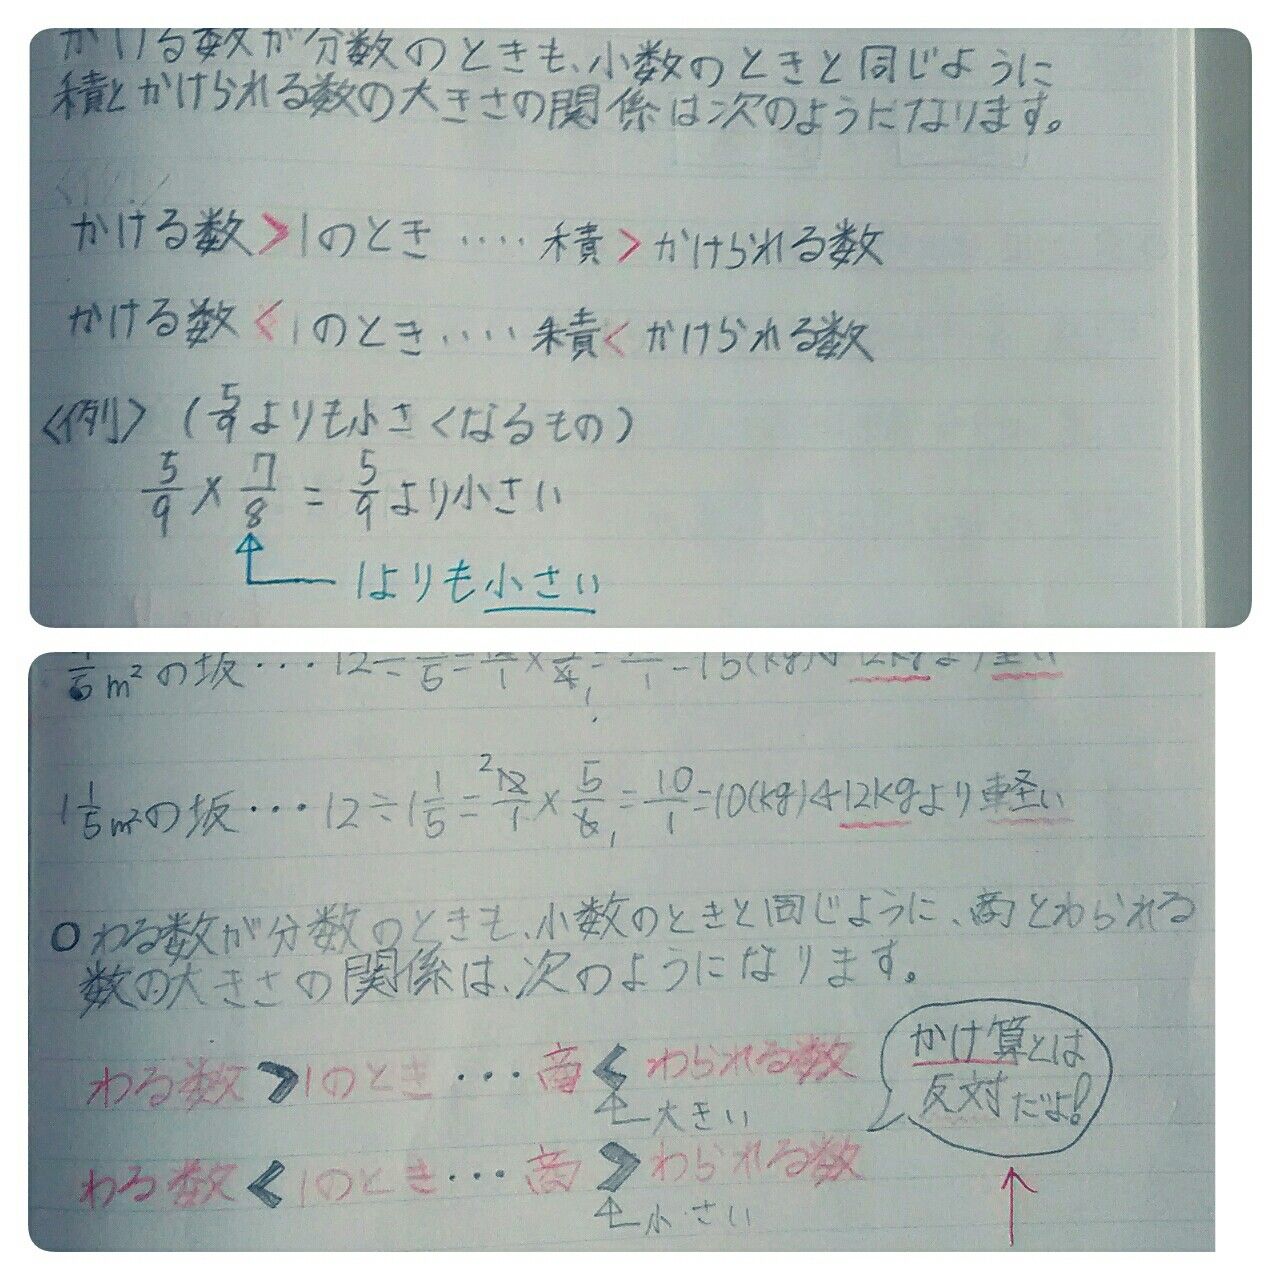 かける数が分数のときも、小数のときと同じように
積とかけられる数の大きさの関係は次のようになります。
かける数>1のとき ‥‥ 積>かけられる数
かける数<1のとき‥‥ 積<かけられる数
〈例〉 (5/9よりも小さくなるもの)
5/9 × 7/8 = 5/9より小さい
1よりも小さい
m²の坂・・・12÷
1 1/5m²の坂・・・12÷1 1/5=12/1×5/6=10/1=10(kg)←12kgより軽い
○わる数が分数のときも、小数のときと同じように、商とわられる
数の大きさの関係は、次のようになります。
わる数>1のとき・・・商<わられる数
大きい
わる数<1のとき・・・商>わられる数
小さい
かけ算とは
反対だよ!